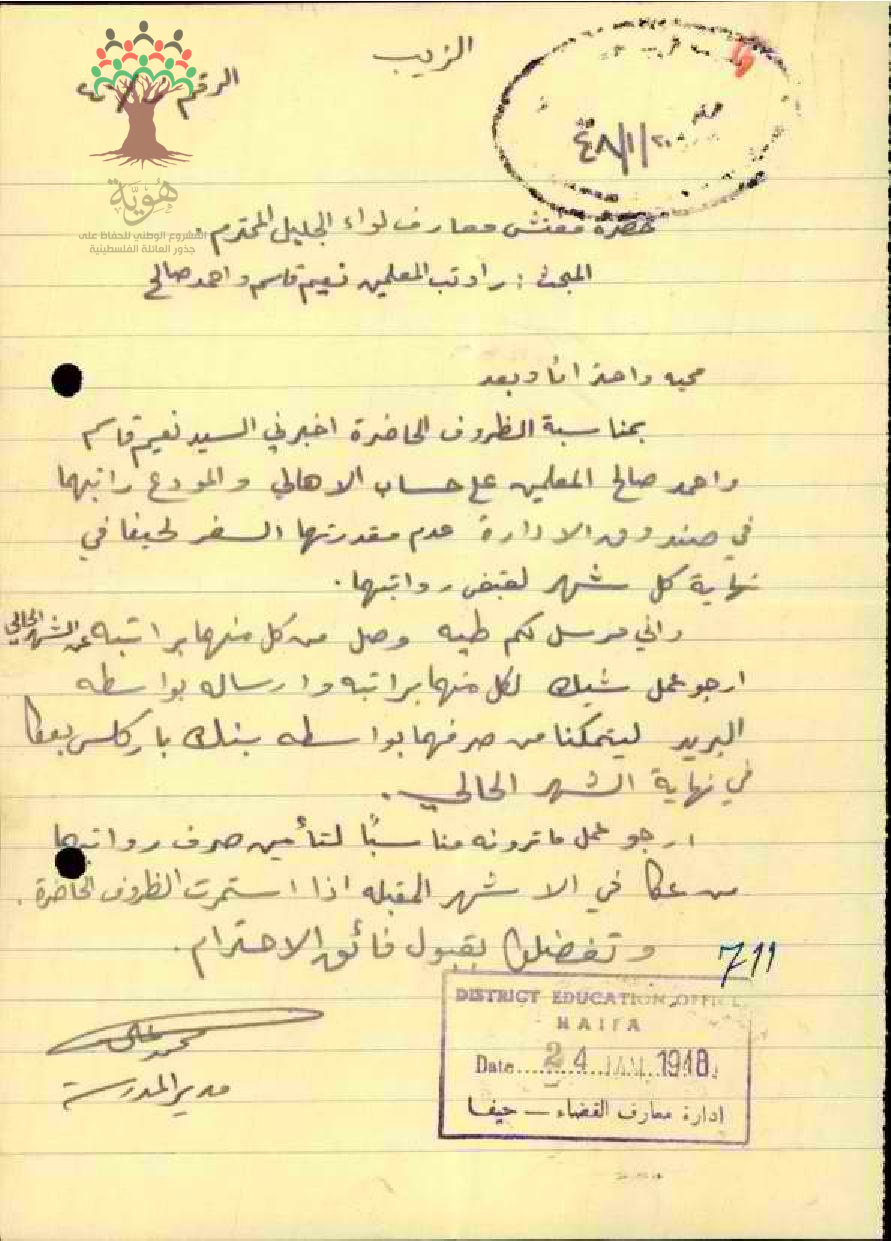 الزيب
الرقم
٤٨/١/٢٠
هُوِيَّة
المشروع الوطني للحفاظ على
جذور العائلة الفلسطينية
حضرة مفتش معارف لواء الجليل المحترم.
المبحث : رواتب المعلمين نعيم قاسم واحمد صالح
تحيه واحتراما وبعد
بمناسبة الظروف الحاضرة اخبرني السيد نعيم قاسم
واحمد صالح المعلمين على حساب الاهالي والمودع راتبهما
في صندوق الادارة عدم مقدرتهما السفر لحيفا في
نهاية كل شهر لقبض رواتبهما.
واني مرسل لكم طيه وصل من كل منهما براتبه عن الشهر الحالي
ارجو عمل شيك لكل منهما براتبه وارساله بواسطه
البريد ليتمكنا من صرفهما بواسطه بنك باركلس بعكا
في نهاية الشهر الحالي.
ارجو عمل ما ترونه مناسبًا لتأمين صرف رواتبهما
من عكا في الاشهر المقبله اذا استمرت الظروف الحاضرة.
وتفضلوا بقبول فائق الاحترام.
711
محمد علي
مدير المدرسة
DISTRICT EDUCATION OFFICE
HAIFA
Date 24 JAN 1948
ادارة معارف القضاء — حيفا